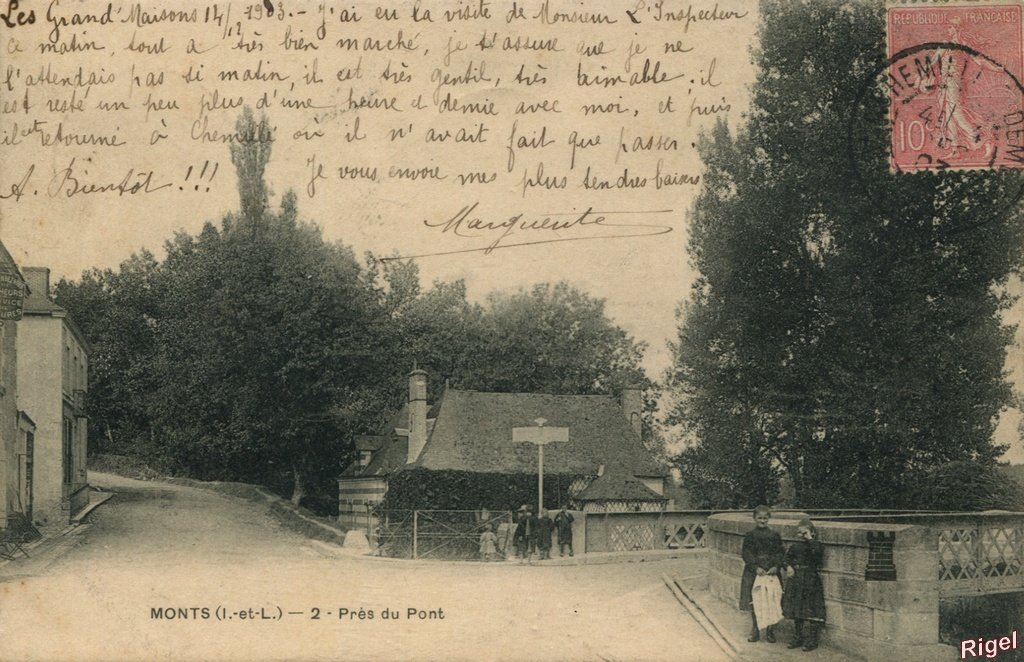 Les Grand' Maisons 14/12 1903. - J'ai eu la visite de Monsieur L'Inspecteur
ce matin, tout a très bien marché, je t'assure que je ne
l'attendais pas si matin, il est très gentil, très aimable; il
est resté un peu plus d'une heure et demie avec moi, et puis
il est retourné à Chemillé où il n'avait fait que passer.
A. Bientôt!!! Je vous envoie mes plus tendres baisers
Marguerite
REPUBLIQUE FRANÇAISE
10
CHEMILL
DEM
VICE
URES
MONTS (I.-et-L.) — 2 - Près du Pont
Rigel